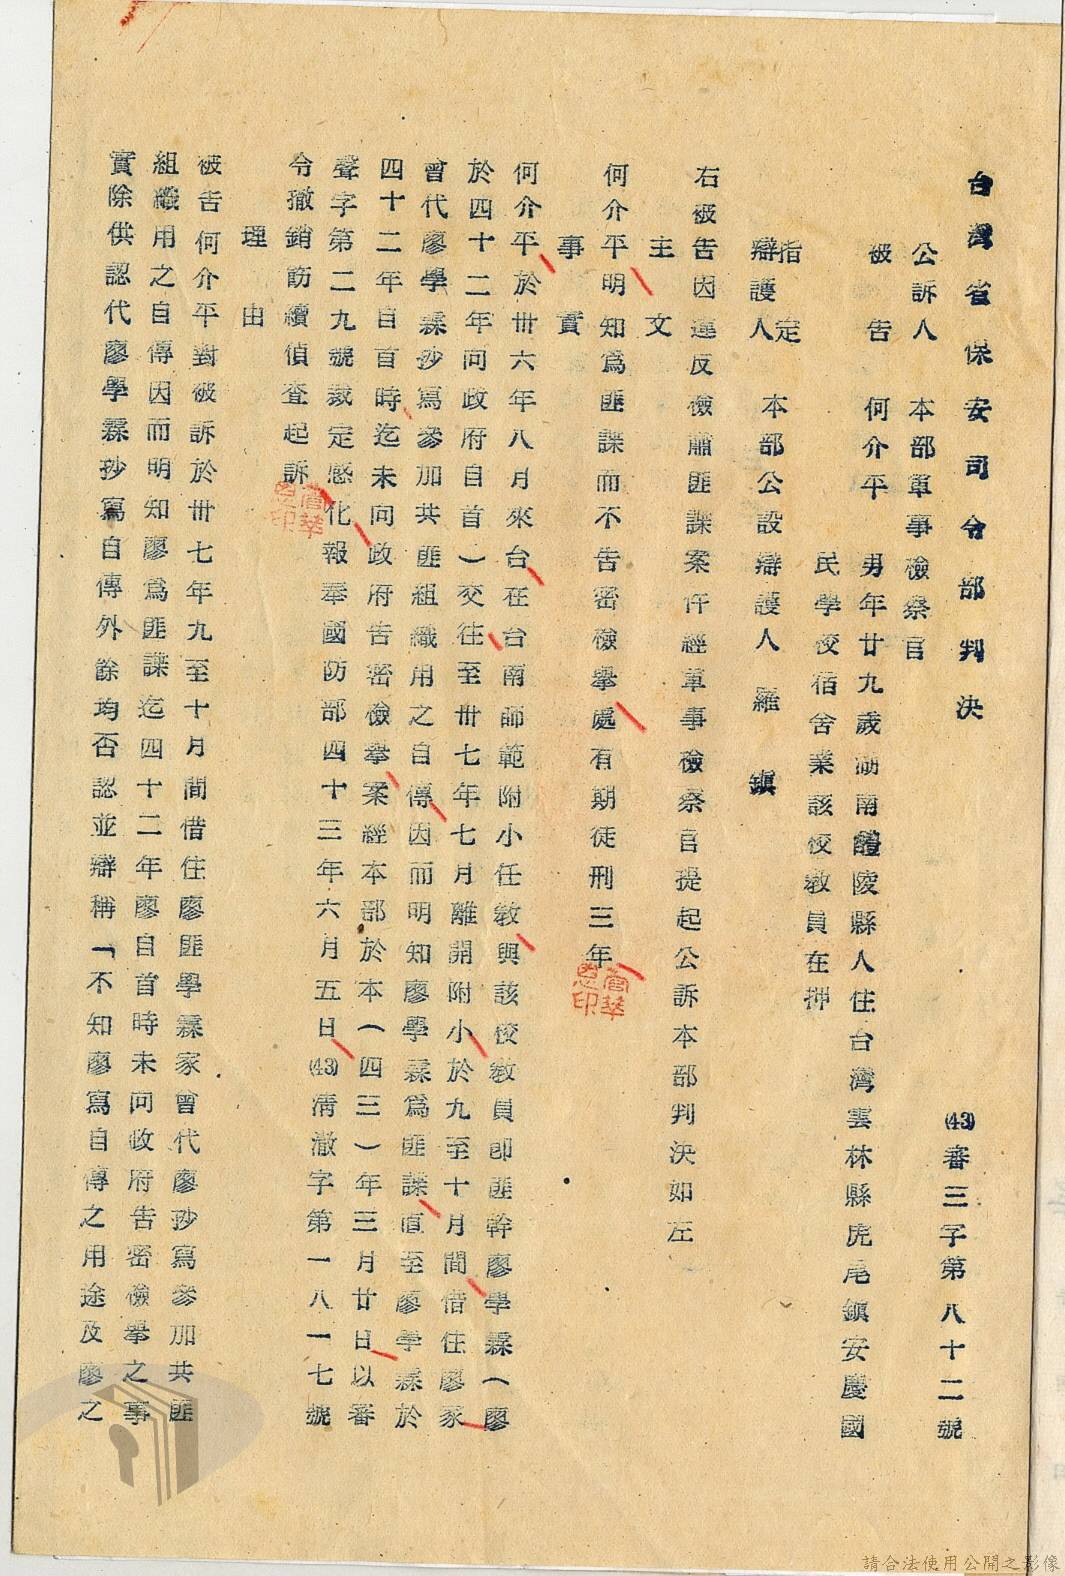 台灣省保安司令部判決
(43)審三字第八十二號
公訴人　本部軍事檢察官
被告　何介平　男年廿九歲湖南醴陵縣人住台灣雲林縣虎尾鎮安慶國
民學校宿舍業該校教員在押
指定
辯護人　本部公設辯護人　羅鎮
右被告因違反檢肅匪諜案件經軍事檢察官提起公訴本部判決如左
主文
何介平明知為匪諜而不告密檢舉處有期徒刑三年
事實
何介平於卅六年八月來台在台南師範附小任教與該校教員即匪幹廖學霖（廖
於四十二年向政府自首）交往至卅七年七月離開附小於九至十月間借住廖家
曾代廖學霖抄寫參加共匪組織用之自傳因而明知廖學霖為匪諜直至廖學霖於
四十二年自首時迄未向政府告密檢舉案經本部於本（四三）年三月廿日以審
聲字第二九號裁定感化報奉國防部四十三年六月五日(43)清澈字第一八一七號
令撤銷飭續偵查起訴
理由
被告何介平對被訴於卅七年九至十月間借住廖匪學霖家曾代廖抄寫參加共匪
組織用之自傳因而明知廖為匪諜迄四十二年廖自首時未向政府告密檢舉之事
實除供認代廖學霖抄寫自傳外餘均否認並辯稱「不知廖寫自傳之用途及廖之
請合法使用公開之影像